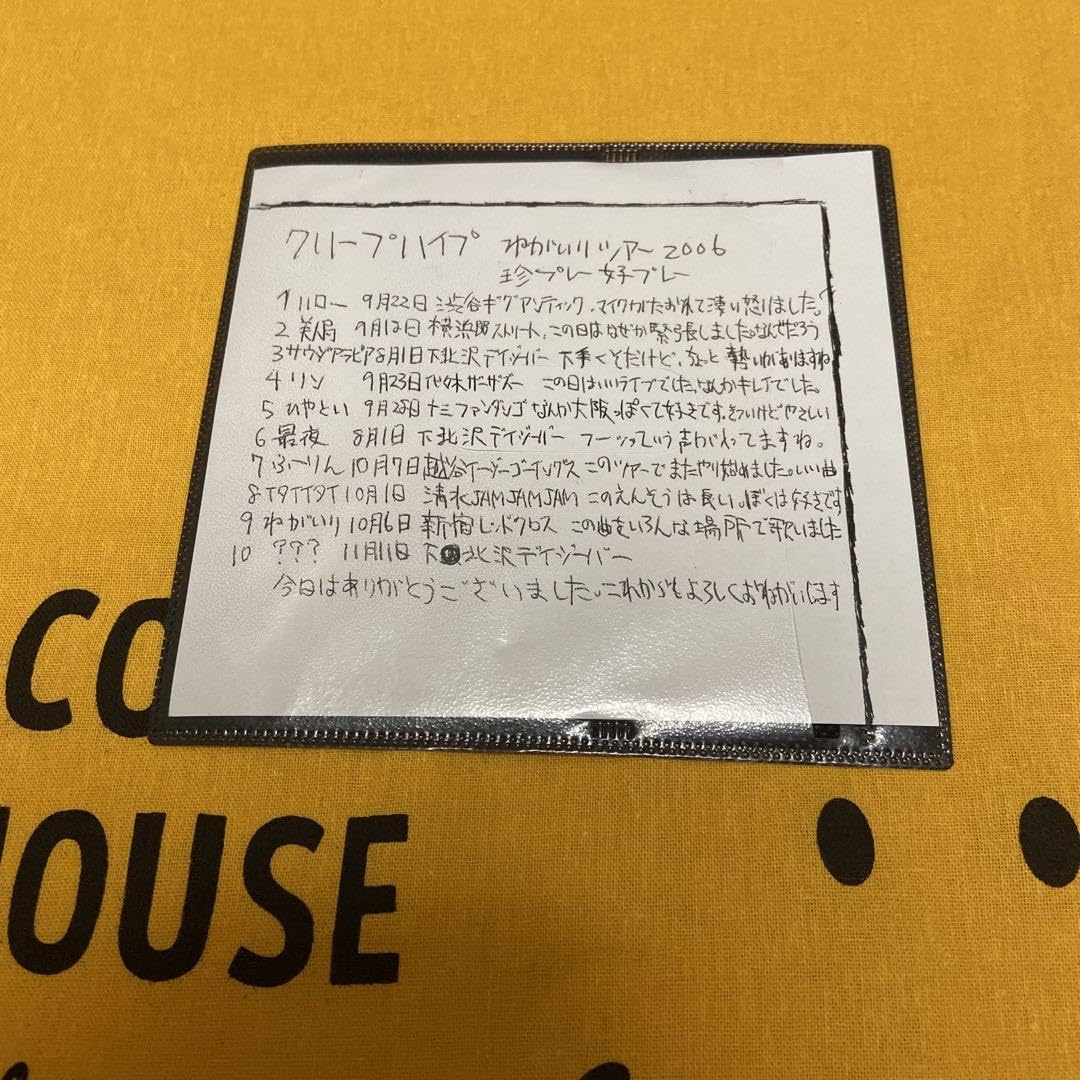 クリープハイプ ねがいりツアー2006
珍プレー好プレー
1 ハロー 9月22日 渋谷ギグアンティック、マイクがたおれて凄い怒りました。
2 美人局 9月12日 横浜 ストリート、この日はなぜか緊張しました。なんでだろう
3 サウジアラビア 8月1日 下北沢デイジーバー 下手くそだけど、なんと勢いがありますね
4 リン 9月23日 代々木ザーザズー この日はいいライブでした。なんかキレイでした。
5 ひやとい 9月28日 十三ファンダンゴ なんか大阪っぽくて好きです。きついけどやさしい
6 最夜 8月1日 下北沢デイジーバー フーッっていう声がわってますね。
7 ふーりん 10月7日 越谷イージーゴーイングス このツアーでまたやり始めました。いい曲
8 イタイイタイ 10月1日 清水JAMJAMJAM このえんそうは長い。ぼくは好きです
9 ねがいり 10月6日 新宿レッドクロス この曲をいろんな場所で歌いました
10 ??? 11月11日 下北沢デイジーバー
今日はありがとうございました。これからもよろしくおねがいします
CO
HOUSE